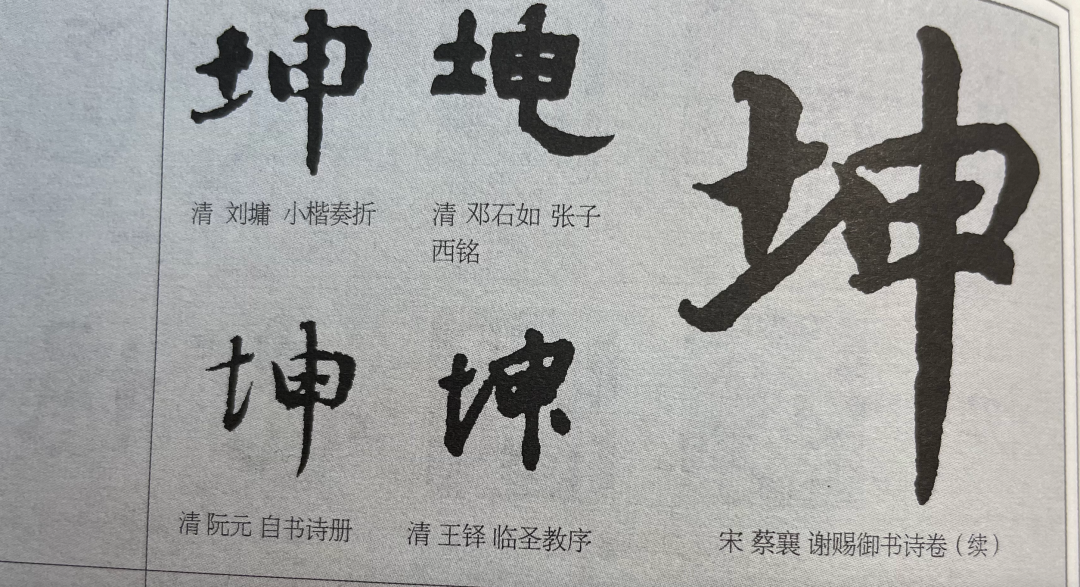 坤 坤
清 刘墉 小楷奏折
清 邓石如 张子
西铭
坤 坤
清 阮元 自书诗册
清 王铎 临圣教序
坤
宋 蔡襄 谢赐御书诗卷（续）